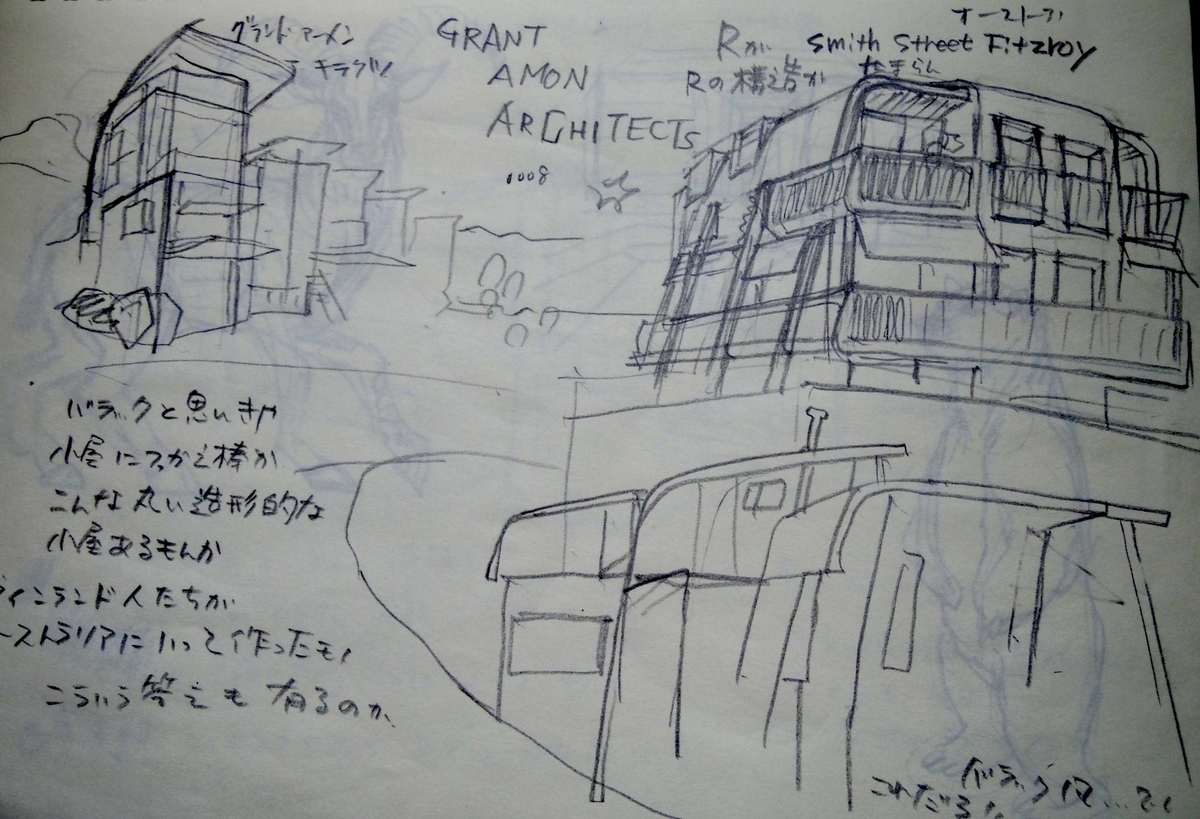 グランド アーメン
キラグツ
GRANT
AMON
ARCHITECTS
1008
オーストーラ
Rが Smith Street Fitzroy
Rの構造が たまらん
バラックと思いきや
小屋につかえ棒か
こんな丸い造形的な
小屋あるもんか
フィンランド人たちが
ーストラリアにいって作ったもん
こういう答えも有るのか、
バラック
これだろ